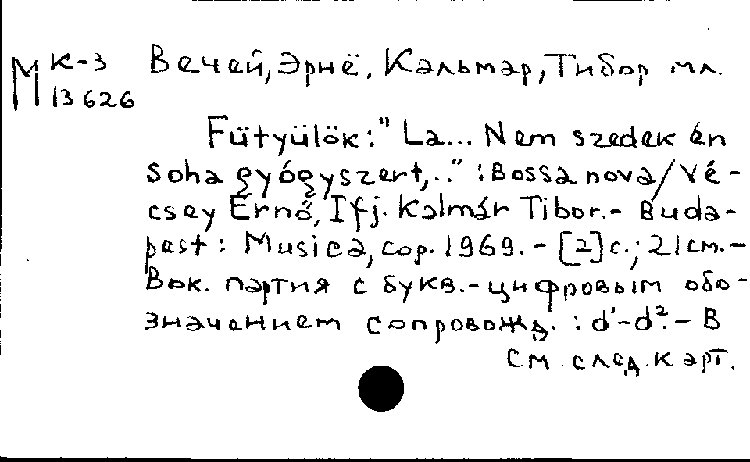 М К-3
13 626
Вечей, Эрнё, Кальмар, Тибор мл.
Fütyülök: "La... Nem szedek én
soha gyógyszert,..." : Bossa nova / Vé-
csey Ernő, Ifj. Kalmár Tibor. - Buda-
pest : Musica, cop. 1969. - [2] с.; 21 см. -
Вок. партия с букв.-цифровым обо-
значением сопровожд. : d¹-d². - В
См. след. карт.